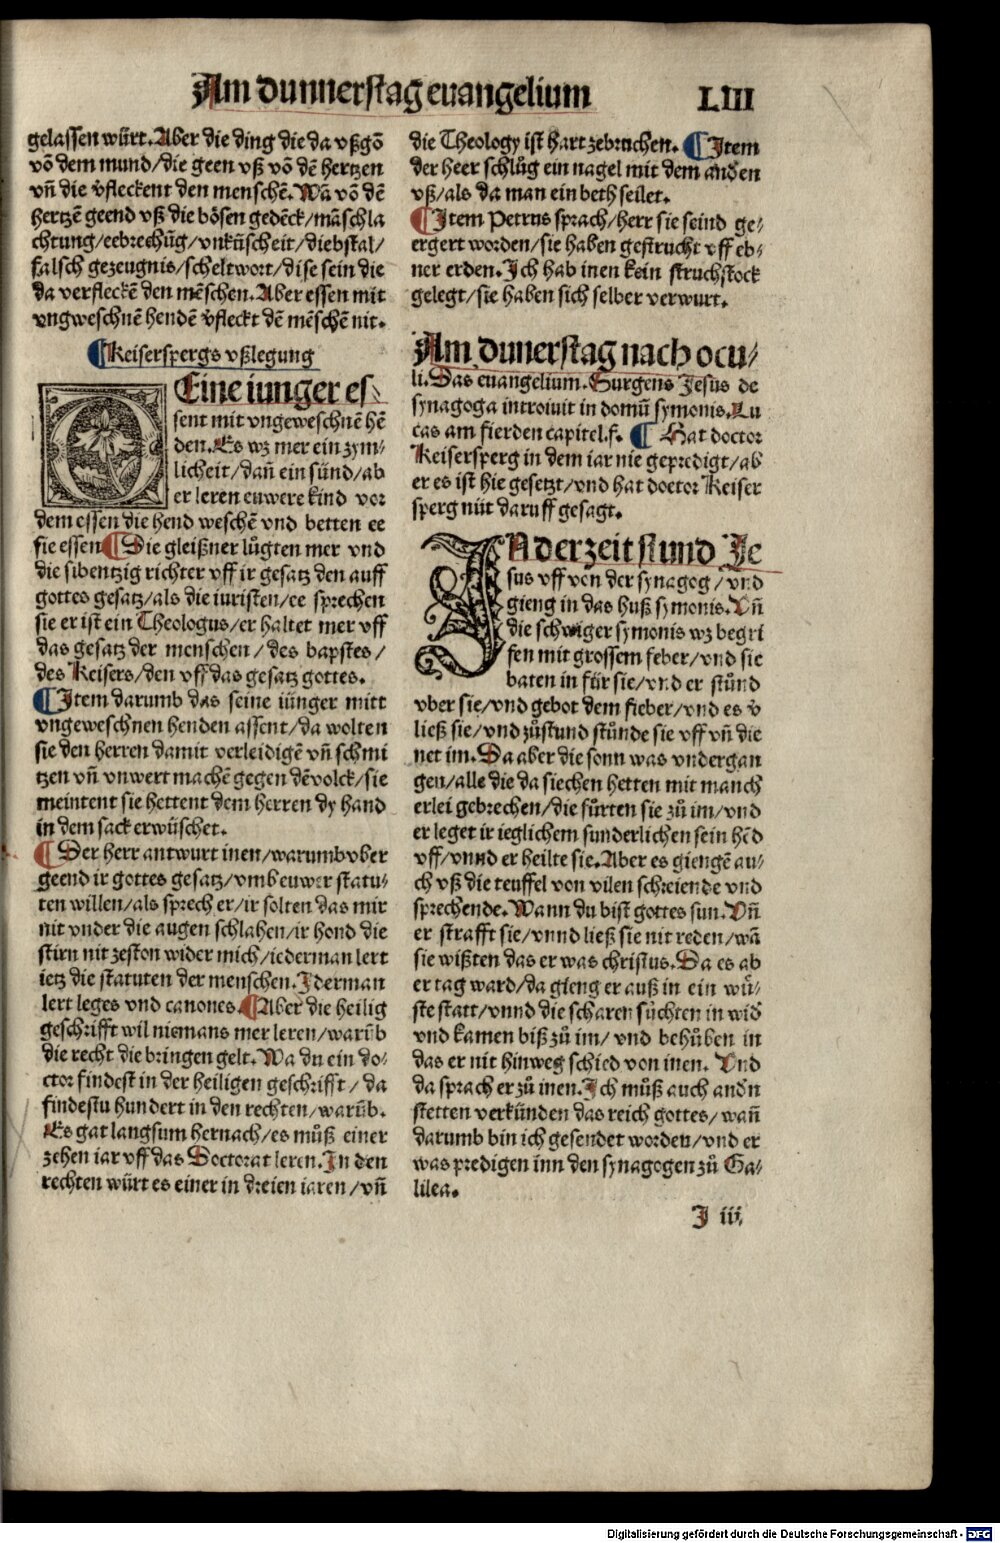 Am dunnerstag euangelium LIII
gelassen würt. Aber die ding die da vßgō
vō dem mund/die geen vß vō dē hertzen
vñ die v̄fleckent den menschē. Wā vō dē
hertzē geend vß die bösen gedēck/māschla
chtung/eebrechūg/vnküscheit/diebstal/
falsch gezeugnis/scheltwort/dise sein die
da verfleckē den mēschen. Aber essen mit
vngweschnē hendē v̄fleckt dē mēschē nit.
¶Keiserspergs vßlegung
Eine iunger es⸗
sent mit vngeweschnē hē
den. Es wz mer ein zym⸗
licheit/dañ ein sünd/ab
er leren euwere kind vor
dem essen die hend weschē vnd betten ee
sie essen ¶Die gleißner lůgten mer vnd
die sibentzig richter vff ir gesatz den auff
gottes gesatz/als die iuristen/ee sprechen
sie er ist ein Theologus/er haltet mer vff
das gesatz der menschen/des bapstes/
des Keisers/den vff das gesatz gottes.
¶Item darumb das seine iünger mitt
vngeweschnen henden assent/da wolten
sie den herren damit verleidigē vñ schmi
tzen vñ vnwert machē gegen dē volck/sie
meintent sie hettent dem herren dy hand
in dem sack erwüschet.
¶Der herr antwurt inen/warumb vber
geend ir gottes gesatz/vmb euwer statu⸗
ten willen/als sprech er/ir solten das mir
nit vnder die augen schlahen/ir hond die
stirn nit zeston wider mich/iederman lert
ietz die statuten der menschen. Iderman
lert leges vnd canones. ¶Aber die heilig
geschrifft wil niemans mer leren/warūb
die recht die bringen gelt. Wa du ein do⸗
ctor findest in der heiligen geschrifft/da
findestu hundert in den rechten/warūb.
Es gat langsum hernach/es můß einer
zehen iar vff das Doctorat leren. In den
rechten würt es einer in dreien iaren/vñ
die Theology ist hart zebruchen. ¶Item
der heer schlůg ein nagel mit dem andˀen
vß/als da man ein beth seilet.
¶Item Petrus sprach/herr sie seind ge⸗
ergert worden/sie haben gestrucht vff eb⸗
ner erden. Ich hab inen kein struchstock
gelegt/sie haben sich selber verwurt.
Am dunerstag nach ocu⸗
li. Das euangelium. Surgens Jesus de
synagoga introiuit in domū symonis. Lu
cas am fierden capitel. f. ¶ Hat doctor
Keisersperg in dem iar nie gepredigt/ab
er es ist hie gesetzt/vnd hat doctor Keiser
sperg nüt daruff gesagt.
IN der zeit stund Je
sus vff von der synagog/vnd
gieng in das huß symonis. Vñ
die schwiger symonis wz begri
fen mit grossem feber/vnd sie
baten in für sie/vnd er stůnd
vber sie/vnd gebot dem fieber/vnd es v̄
ließ sie/vnd zůstund stůnde sie vff vñ die
net im. Da aber die sonn was vndergan
gen/alle die da siechen hetten mit manch
erlei gebrechen/die fůrten sie zů im/vnd
er leget ir ieglichem sunderlichen sein hēd
vff/vnnd er heilte sie. Aber es giengē au⸗
ch vß die teuffel von vilen schreiende vnd
sprechende. Wann du bist gottes sun. Vñ
er strafft sie/vnnd ließ sie nit reden/wā
sie wißten das er was christus. Da es ab
er tag ward/da gieng er auß in ein wů⸗
ste statt/vnnd die scharen sůchten in widˀ
vnd kamen biß zů im/vnd behůben in
das er nit hinweg schied von inen. Vnd
da sprach er zů inen. Ich můß auch andˀn
stetten verkünden das reich gottes/wañ
darumb bin ich gesendet worden/vnd er
was predigen inn den synagogen zů Ga⸗
lilea.
J iii
Digitalisierung gefördert durch die Deutsche Forschungsgemeinschaft - DFG